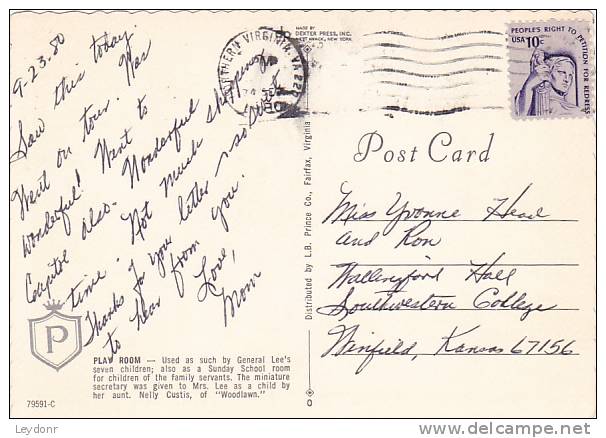 9-23-80
Saw this today.
Went on tour. Was
wonderful! Went to
Capitol also. Wonderful
time. Not much shopping
Thanks for your letter
to hear from you.
Love,
Mom
MADE BY
DEXTER PRESS, INC.
WEST NYACK, NEW YORK
NORTHERN VIRGINIA, VA 22
PEOPLE'S RIGHT TO PETITION FOR REDRESS
USA 10c
Post Card
Miss Yvonne Head
and Ron
Wallingford Hall
Southwestern College
Winfield, Kansas 67156
Distributed by L.B. Prince Co., Fairfax, Virginia
P
PLAY ROOM — Used as such by General Lee's
seven children; also as a Sunday School room
for children of the family servants. The miniature
secretary was given to Mrs. Lee as a child by
her aunt. Nelly Custis, of "Woodlawn."
79591-C
Leydonr
www.delcampe.net